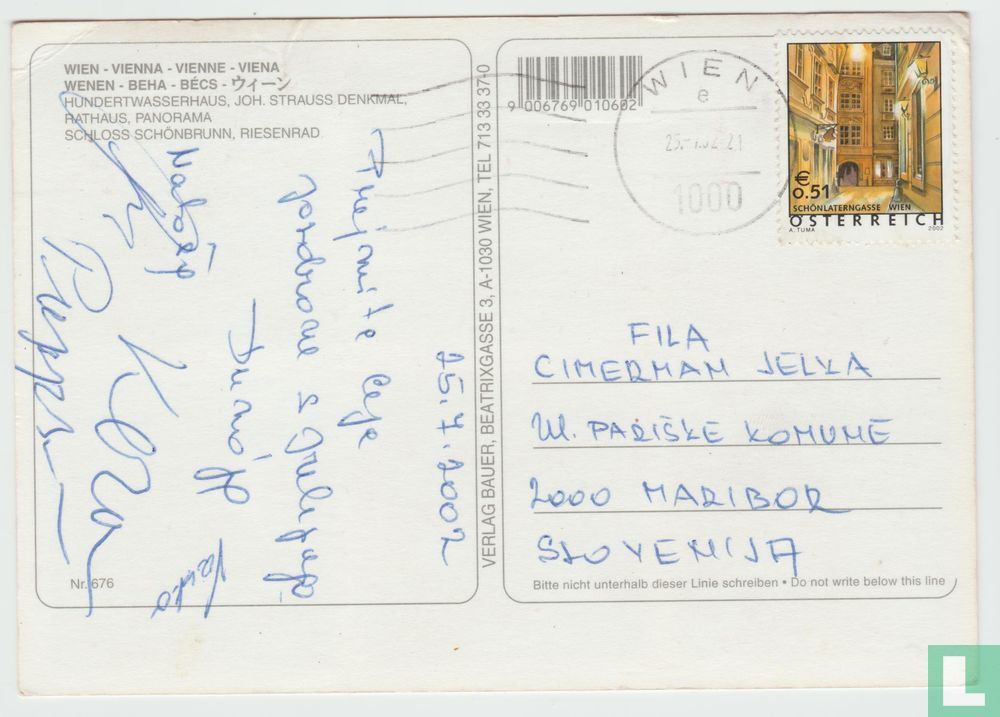 WIEN - VIENNA - VIENNE - VIENA
WENEN - BEHA - BÉCS - ウィーン
HUNDERTWASSERHAUS, JOH. STRAUSS DENKMAL,
RATHAUS, PANORAMA
SCHLOSS SCHÖNBRUNN, RIESENRAD
25.7.2002
Prejmite lepe
pozdrave s
Dunaja
Nataša
Nr. 676
VERLAG BAUER, BEATRIXGASSE 3, A-1030 WIEN, TEL 713 33 37-0
9 006769 010602
WIEN
e
1000
€
0.51
SCHÖNLATERNGASSE WIEN
ÖSTERREICH
A. TUMA
2002
FILA
CIMERMAN JELKA
Ul. PARIŠKE KOMUNE
2000 MARIBOR
SLOVENIJA
Bitte nicht unterhalb dieser Linie schreiben • Do not write below this line
L